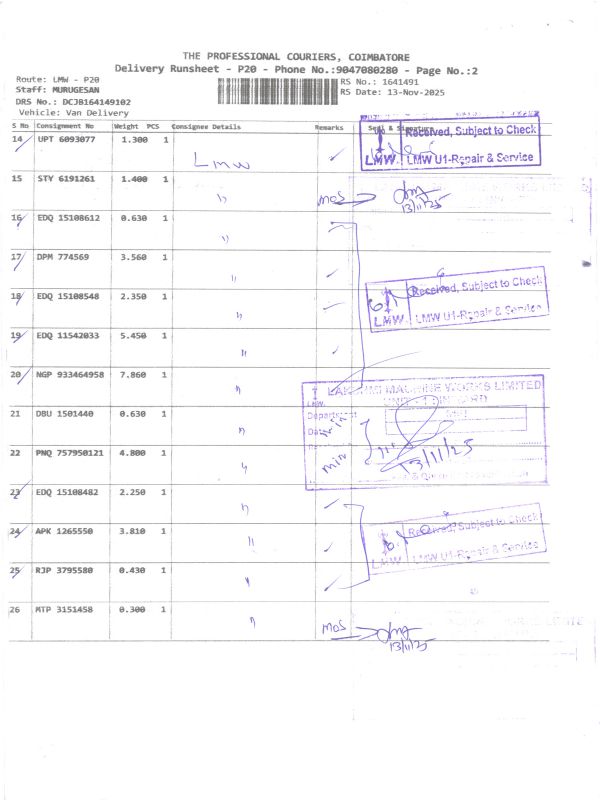 THE PROFESSIONAL COURIERS, COIMBATORE
Delivery Runsheet - P20 - Phone No.:9047080280 - Page No.:2
Route: LMW - P20
RS No.: 1641491
Staff: MURUGESAN
RS Date: 13-Nov-2025
DRS No.: DCJB164149102
Vehicle: Van Delivery
S No Consignment No Weight PCS Consignee Details Remarks Seal & Signature
14 UPT 6093077 1.300 1 LMW
Received, Subject to Check
LMW LMW U1-Repair & Service
15 STY 6191261 1.400 1 " MOS
13/11/25
16 EDQ 15108612 0.630 1 "
17 DPM 774569 3.560 1 "
18 EDQ 15108548 2.350 1 "
Received, Subject to Check
LMW LMW U1-Repair & Service
19 EDQ 11542033 5.450 1 "
20 NGP 933464958 7.860 1 "
LAKSHMI MACHINE WORKS LIMITED
LMW
Department
21 DBU 1501440 0.630 1 "
Date
22 PNQ 757950121 4.800 1 "
13/11/25
23 EDQ 15108482 2.250 1 "
24 APK 1265550 3.810 1 "
Received, Subject to Check
LMW LMW U1-Repair & Service
25 RJP 3795580 0.430 1 "
26 MTP 3151458 0.300 1 " MOS
13/11/25